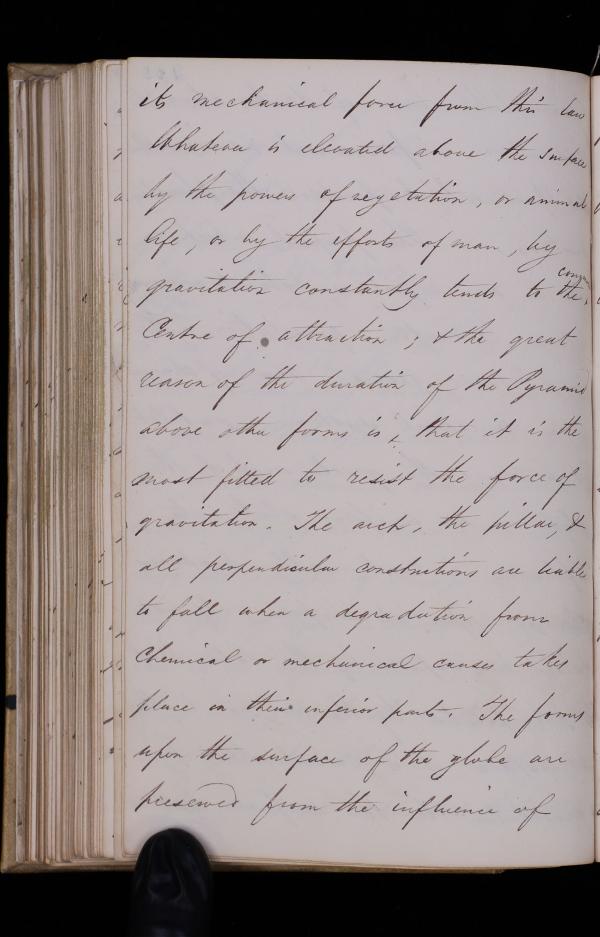 its mechanical force from this law
Whatever is elevated above the surface
by the powers of vegetation, or animal
life, or by the efforts of man, by
gravitation constantly tends to the common
Centre of attraction; & the great
reason of the duration of the Pyramid
above other forms is, that it is the
most fitted to resist the force of
gravitation. The arch, the pillar, &
all perpendicular constructions are liable
to fall when a degradation from
Chemical or mechanical causes takes
place in their inferior parts. The forms
upon the surface of the globe are
preserved from the influence of